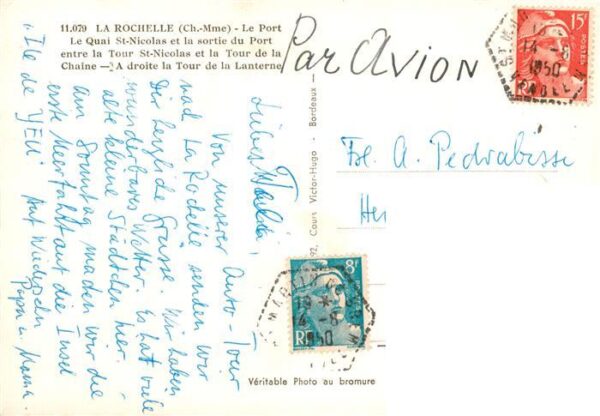 11.079 LA ROCHELLE (Ch.-Mme) - Le Port
Le Quai St-Nicolas et la sortie du Port
entre la Tour St-Nicolas et la Tour de la
Chaîne — A droite la Tour de la Lanterne
Par Avion
15F
POSTES
14 -8
1950
Frl. A. Pedrabissi
92, Cours Victor-Hugo - Bordeaux -
8F
RF
14 -8
1950
Véritable Photo au bromure
Von unserer Auto-Tour
nach La Rochelle senden wir
Dir herzliche Grüsse. Wir haben
wunderbares Wetter. Es hat viele
alte kleine Städtchen hier.
Am Sonntag machen wir die
erste Meerfahrt auf die Insel
"Ile de YEU" Auf Wiedersehn
Papa u. Mama.